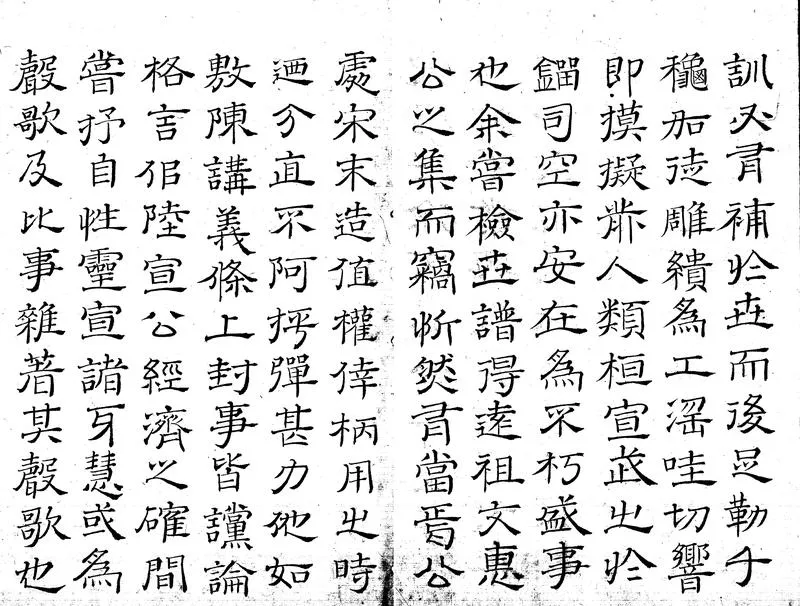 訓必有補於世而後足勒千
龝如徒雕繢為工淫哇切響
即摸擬歬人類桓宣武之於
鎦司空亦安在為不朽盛事
也余嘗檢世譜得遠祖文惠
公之集而竊忻然有當焉公
處宋末造值權倖柄用之時
迺介直不阿抨彈甚力他如
敷陳講義條上封事皆讜論
格言佀陸宣公經濟之確間
嘗抒自性靈宣諸牙慧或為
聲歌及比事雜著其聲歌也